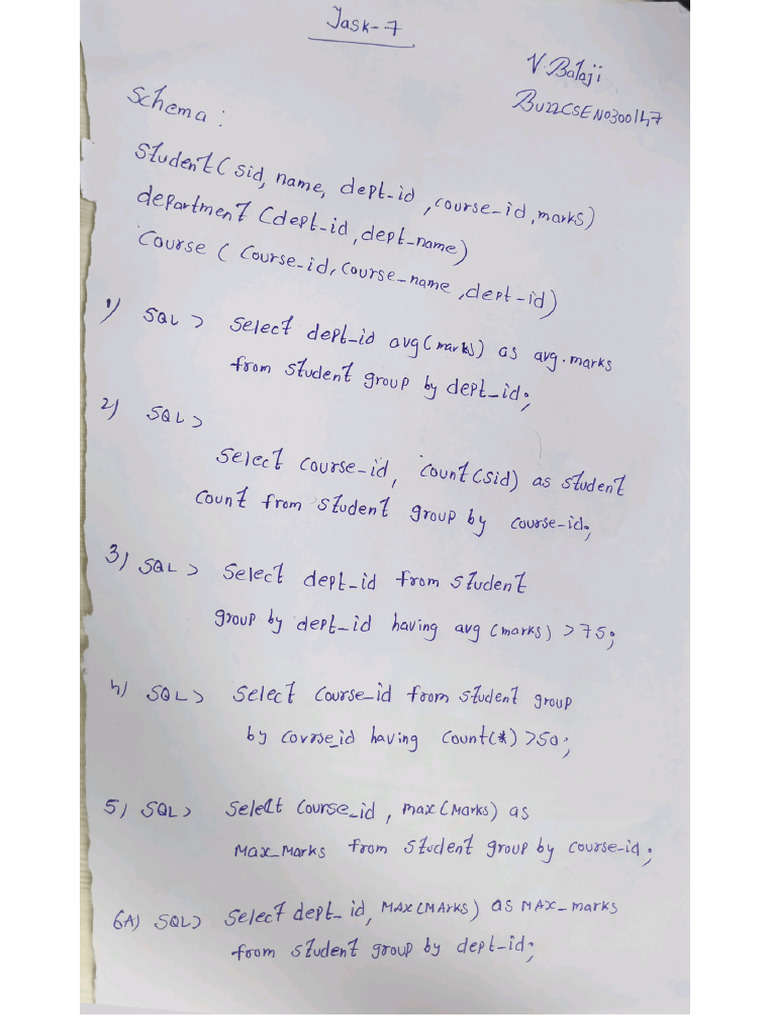 Task-7
V. Balaji
BU22CSEN0300147
Schema:
Student( sid, name, dept-id, course-id, marks)
department (dept-id, dept-name)
Course ( Course-id, course-name, dept-id)
1) SQL > select dept-id avg(marks) as avg.marks
from student group by dept-id;
2) SQL >
select course-id, count(sid) as student
count from student group by course-id;
3) SQL > select dept-id from student
group by dept-id having avg (marks) >75;
4) SQL > select course-id from student group
by course_id having count(*) >50;
5) SQL > select course_id, max(Marks) as
Max_Marks from student group by course-id;
6A) SQL > select dept_id, MAX(MArks) as MAX_marks
from student group by dept-id;